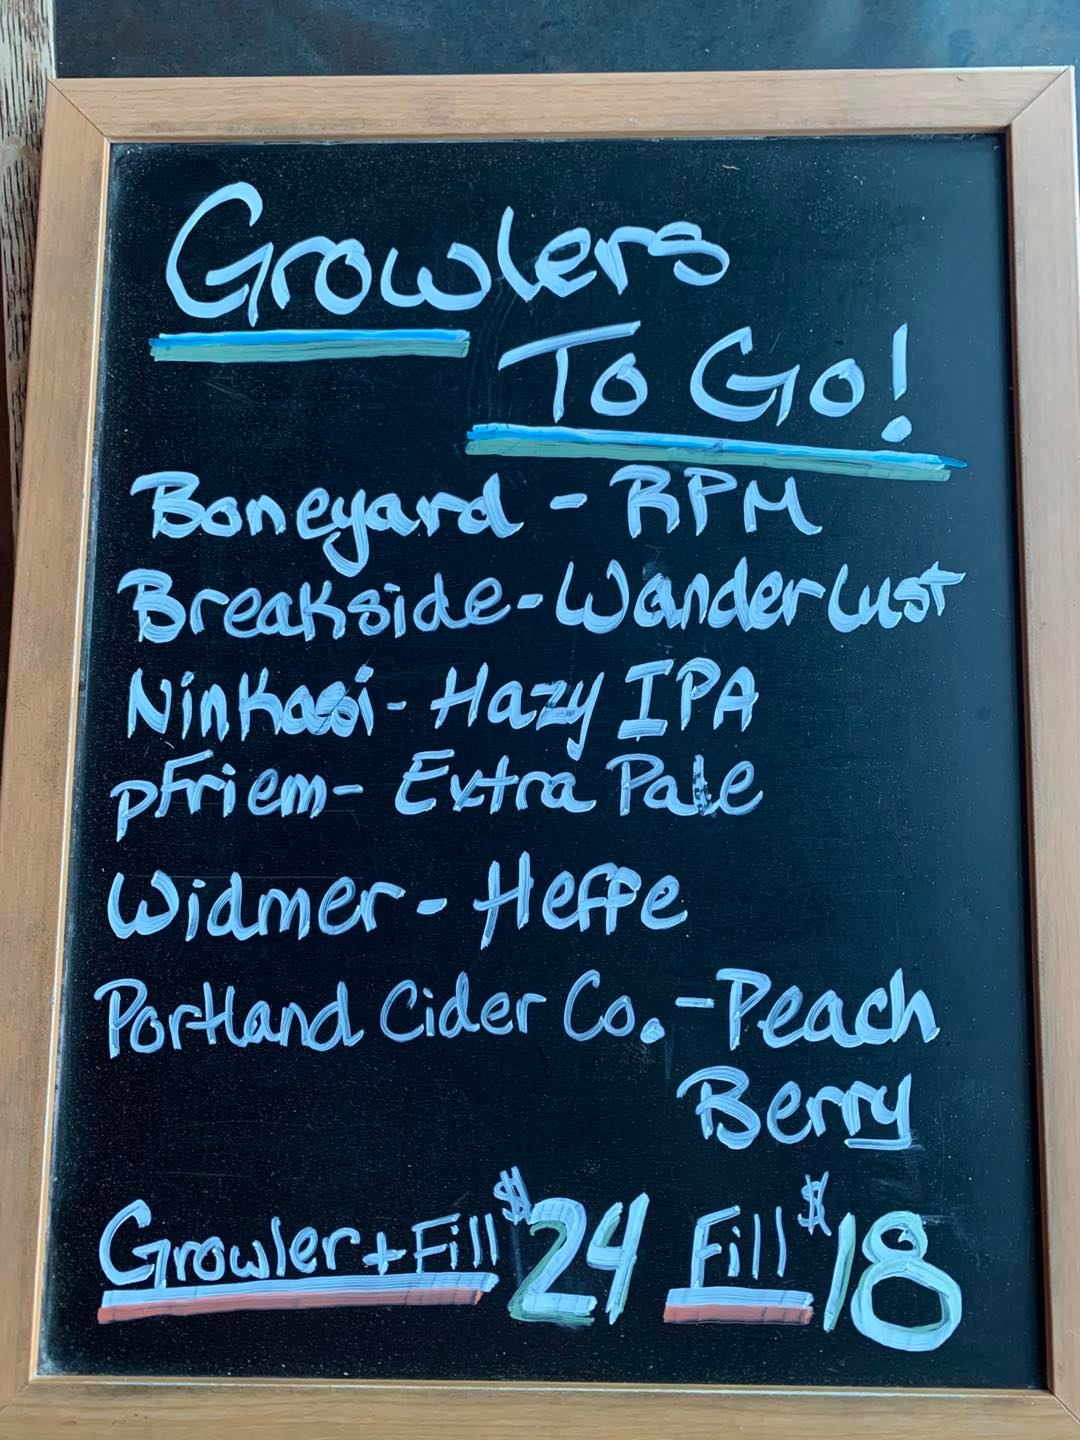 Growlers
To Go!
Boneyard - RPM
Breakside - Wanderlust
Ninkasi - Hazy IPA
pFriem - Extra Pale
Widmer - Heffe
Portland Cider Co. - Peach
Berry
Growler + Fill $24 Fill $18